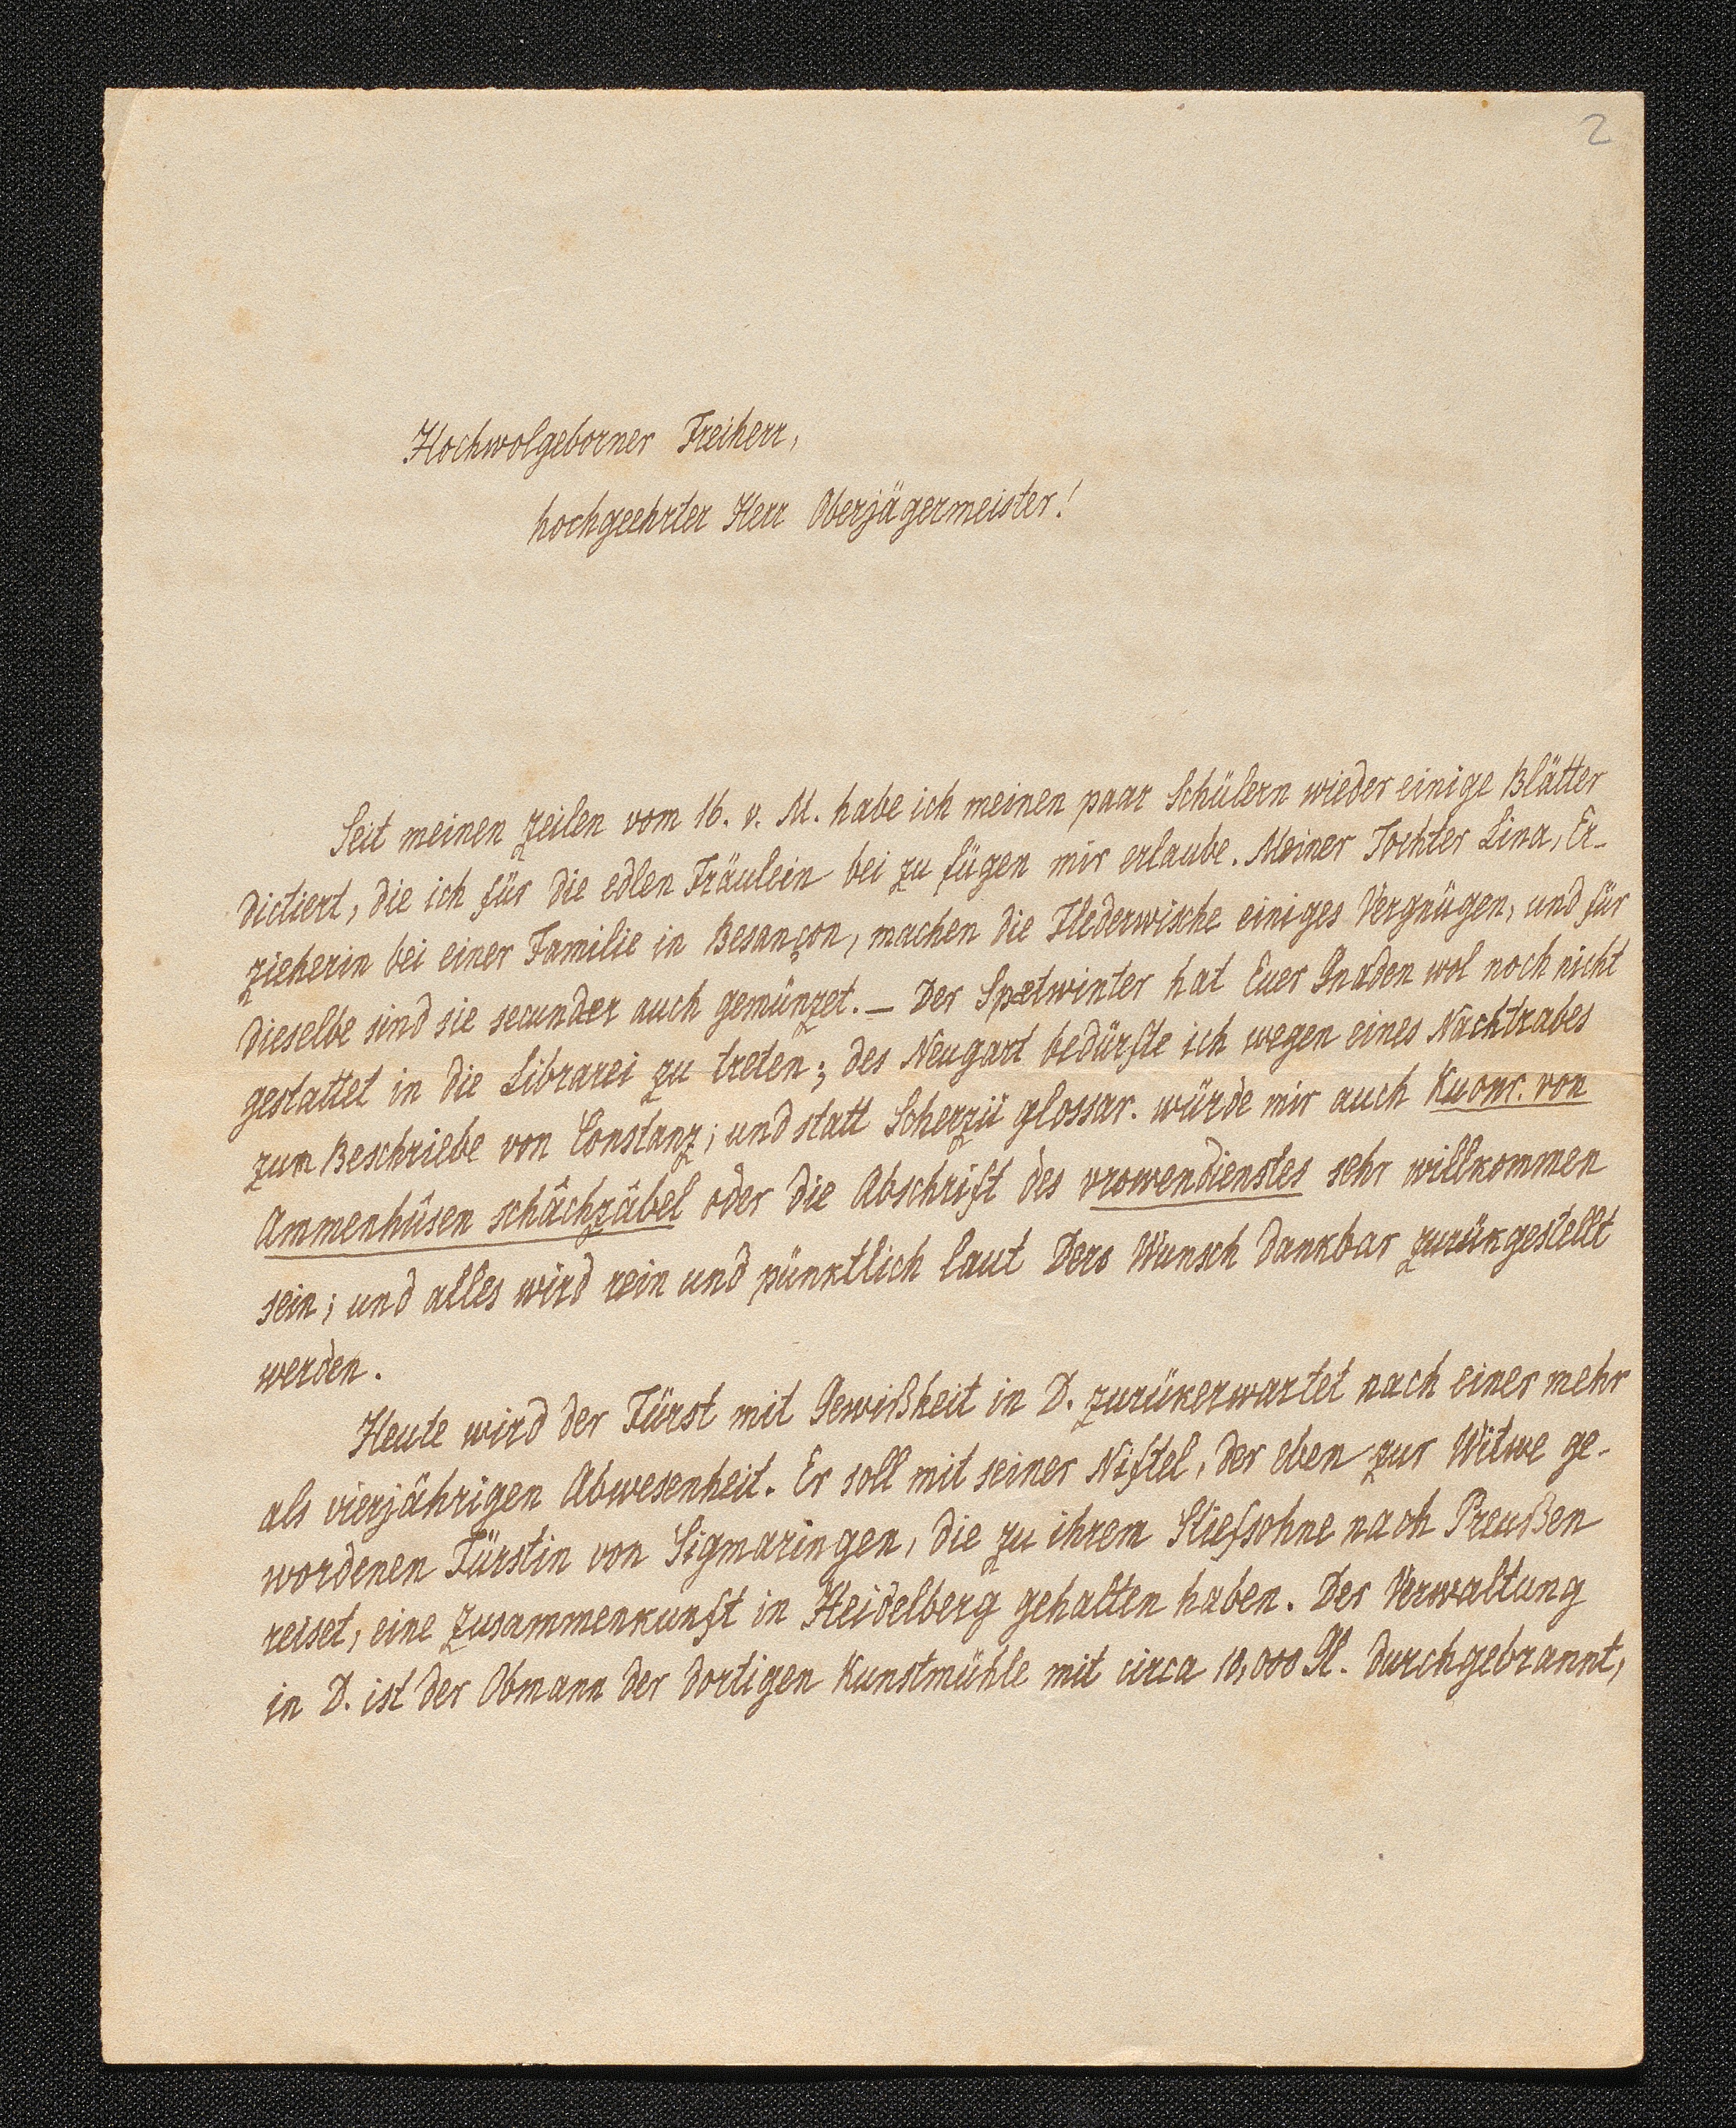 2
Hochwolgeborner Freiherr,
hochgeehrter Herr Oberjägermeister!
Seit meinen Zeilen vom 16. v. M. habe ich meinen paar Schülern wieder einige Blätter
dictiert, die ich für die edlen Fräulein bei zu fügen mir erlaube. Meiner Tochter Lina, Er-
zieherin bei einer Familie in Besançon, machen die Flederwische einiges Vergnügen, und für
dieselbe sind sie secunder auch gemünzet. — Der Spætwinter hat Euer Gnaden wol noch nicht
gestattet in die Librarei zu treten; des Neugart bedürfte ich wegen eines Nachtrabes
zum Beschriebe von Constanz; und statt Scherzii glossar. würde mir auch Kuonr. von
Ammenhûsen schâchzâbel oder die Abschrift des vrowendienstes sehr willkommen
sein; und alles wird rein und pünktlich laut Dero Wunsch dankbar zurükgestellt
werden.
Heute wird der Fürst mit Gewißheit in D. zurükerwartet nach einer mehr
als vierjährigen Abwesenheit. Er soll mit seiner Niftel, der eben zur Witwe ge-
wordenen Fürstin von Sigmaringen, die zu ihrem Stiefsohne nach Preußen
reiset, eine Zusammenkunft in Heidelberg gehalten haben. Der Verwaltung
in D. ist der Obmann der dortigen Kunstmühle mit circa 10,000 Gl. durchgebrannt,